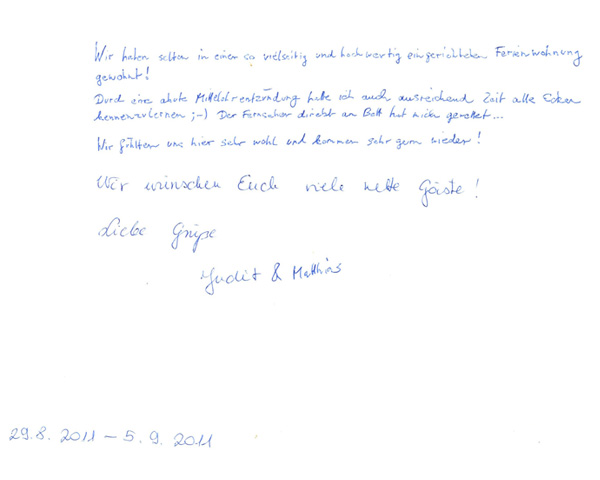 Wir haben selten in einer so vielseitig und hochwertig eingerichteten Ferienwohnung
gewohnt!
Durch eine akute Mittelohrentzündung habe ich auch ausreichend Zeit alle Ecken
kennenzulernen ;-) Der Fernseher direkt am Bett hat mich gerettet...
Wir fühlten uns hier sehr wohl und kommen sehr gern wieder!
Wir wünschen Euch viele nette Gäste!
Liebe Grüße
Judit & Matthias
29.8. 2011 – 5.9. 2011